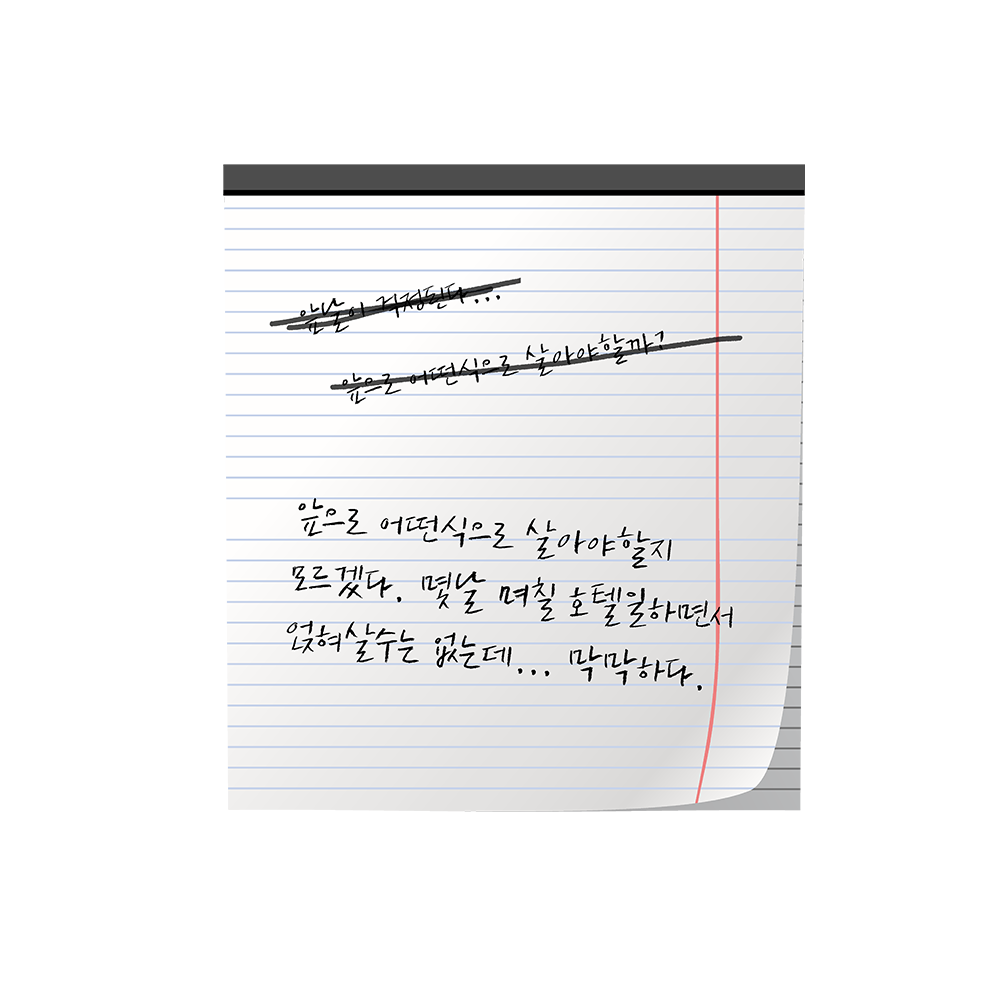 앞날이 걱정된다...
앞으로 어떤식으로 살아야할까?
앞으로 어떤식으로 살아야할지
모르겠다. 몇날 며칠 호텔일하면서
얹혀살수는 없는데... 막막하다.